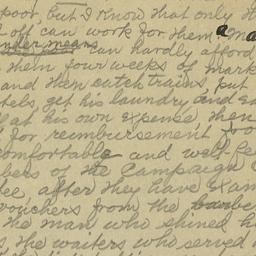 poor, but I know that only th
off can work for them a ma
under means can hardly afford
them four weeks of mark
and then catch trains, put
tels, get his laundry and ea
all at his own expense then
d for reimbursement too
comfortable and well-fe
bers of the Campaign C
tee after they have exam
vouchers from the barbe
the man who shined hi
s, the waiters who served a